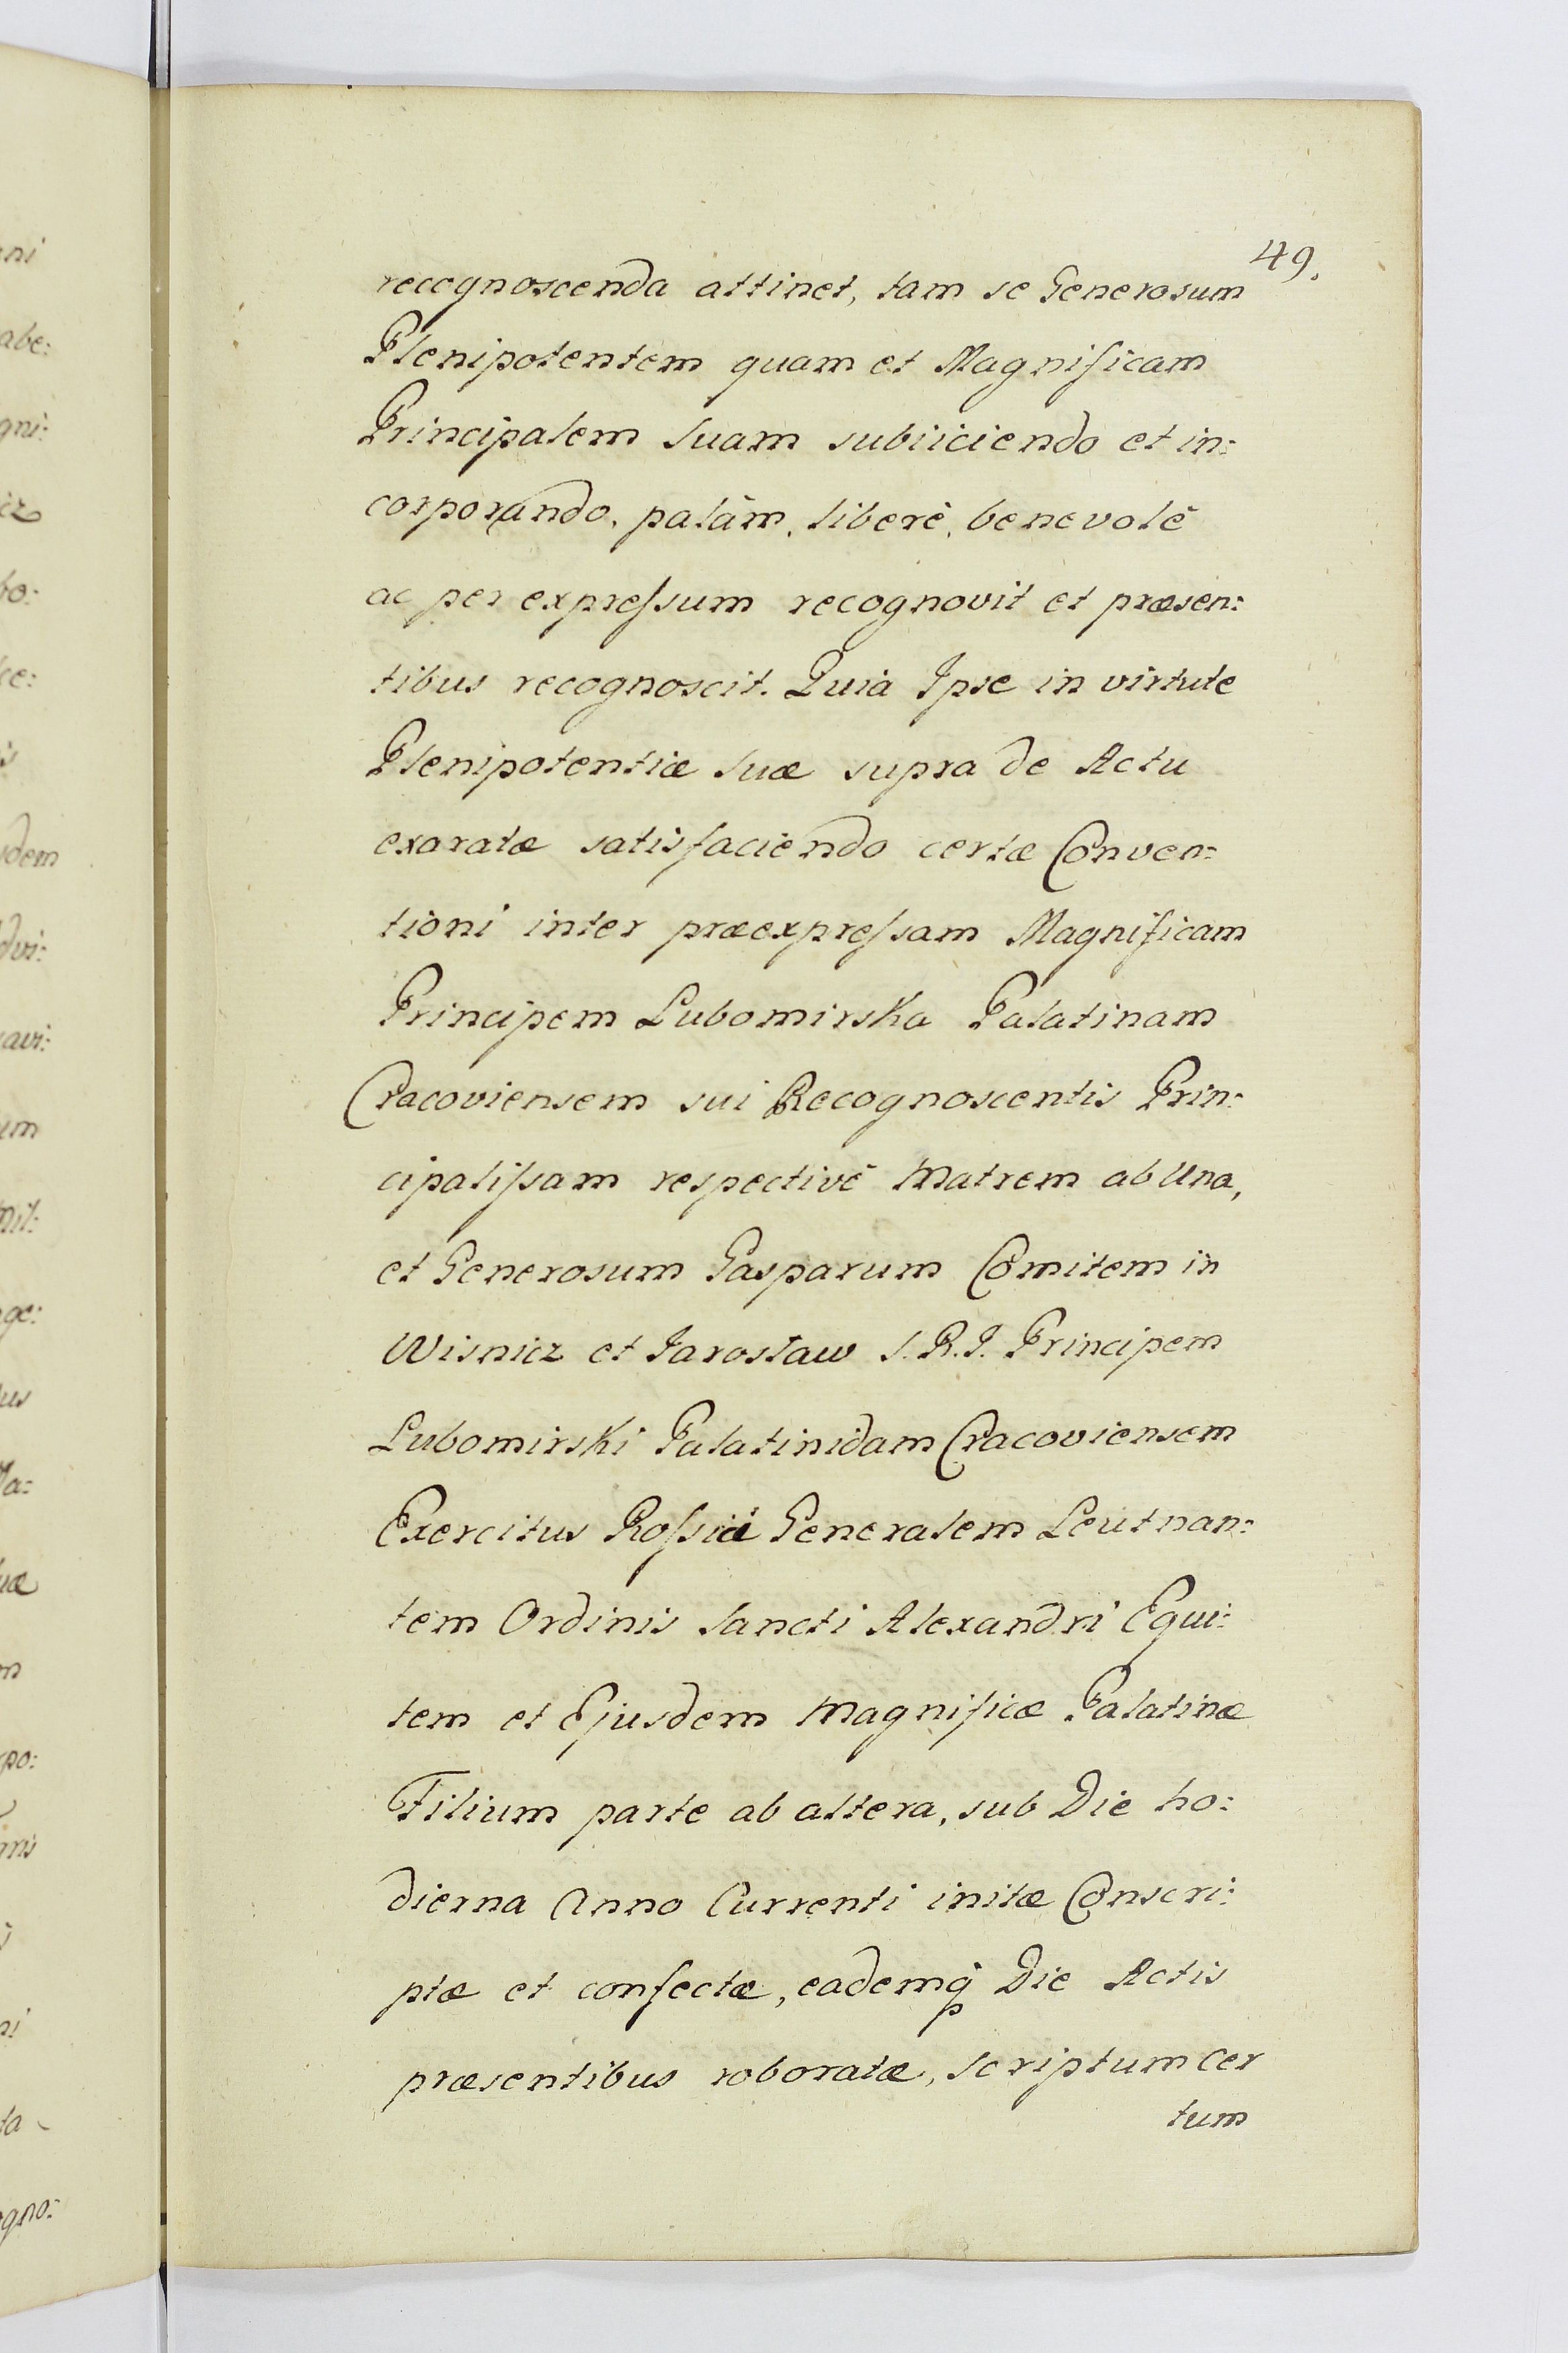 49.
recognoscenda attinet, tam se Generosum
Plenipotentem quam et Magnificam
Principalem Suam subiiciendo et in:
corporando, palàm, liberè, benevolè
ac per expreſsum recognovit et præsen:
tibus recognoscit. Quia Ipse in virtute
Plenipotentiæ Suæ supra de Actu
exaratæ satisfaciendo certæ Conven:
tioni inter præexpreſsam Magnificam
Principem Lubomirska Palatinam
Cracoviensem sui Recognoscentis Prin:
cipaliſsam respectivè Matrem ab Una,
et Generosum Gasparum Comitem in
Wisnicz et Jarosław S. R. I. Principem
Lubomirski Palatinidam Cracoviensem
Exercitus Roſsiæ Generalem Leutnan:
tem Ordinis Sancti Alexandri Equi:
tem et Ejusdem Magnificæ Palatinæ
Filium parte ab altera, sub Die ho:
dierna Anno Currenti initæ Conscri:
ptæ et confectæ, eademq̃ Die Actis
præsentibus roboratæ, Scriptum Cer
tum
ni
abe:
gni:
icz
bo:
ce:
is
dem
dvi:
avi:
um
mit:
ge:
us
Ma:
uæ
m
po:
ta
gno: